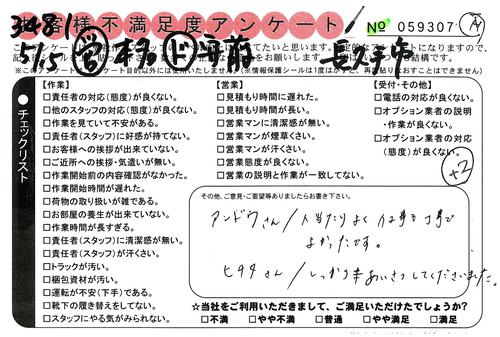 お客様不満足度アンケート
№ 059307
A
長久手市
+2
チェックリスト
【作業】
□責任者の対応(態度)が良くない。
□他のスタッフの対応(態度)が良くない。
□作業を見ていて不安がある。
□責任者(スタッフ)に好感が持てない。
□お客様への挨拶が出来ていない。
□ご近所への挨拶・気遣いが無い。
□作業開始前の内容確認がなかった。
□作業開始時間が遅れた。
□荷物の取り扱いが雑である。
□お部屋の養生が出来ていない。
□作業時間が長すぎる。
□責任者(スタッフ)に清潔感が無い。
□責任者(スタッフ)が汗くさい。
□トラックが汚い。
□梱包資材が汚い。
□運転が不安(下手)である。
□靴下の履き替えをしてない。
□スタッフにやる気がみられない。
【営業】
□見積もり時間に遅れた。
□見積もり時間が長い。
□営業マンに清潔感が無い。
□営業マンが煙草くさい。
□営業マンが汗くさい。
□営業態度が良くない。
□営業の説明と作業が一致してない。
【受付・その他】
□電話の対応が良くない。
□オプション業者の説明
・作業が良くない。
□オプション業者の対応
(態度)が良くない。
その他、ご意見・ご要望等ありましたらお書き下さい。
アンドウさん/人当たりよく仕事も丁寧で
よかったです。
ヒダさん/しっかりあいさつしてくださいました。
☆当社をご利用いただきまして、ご満足いただけたでしょうか?
□不満 □やや不満 □普通 □やや満足 □満足